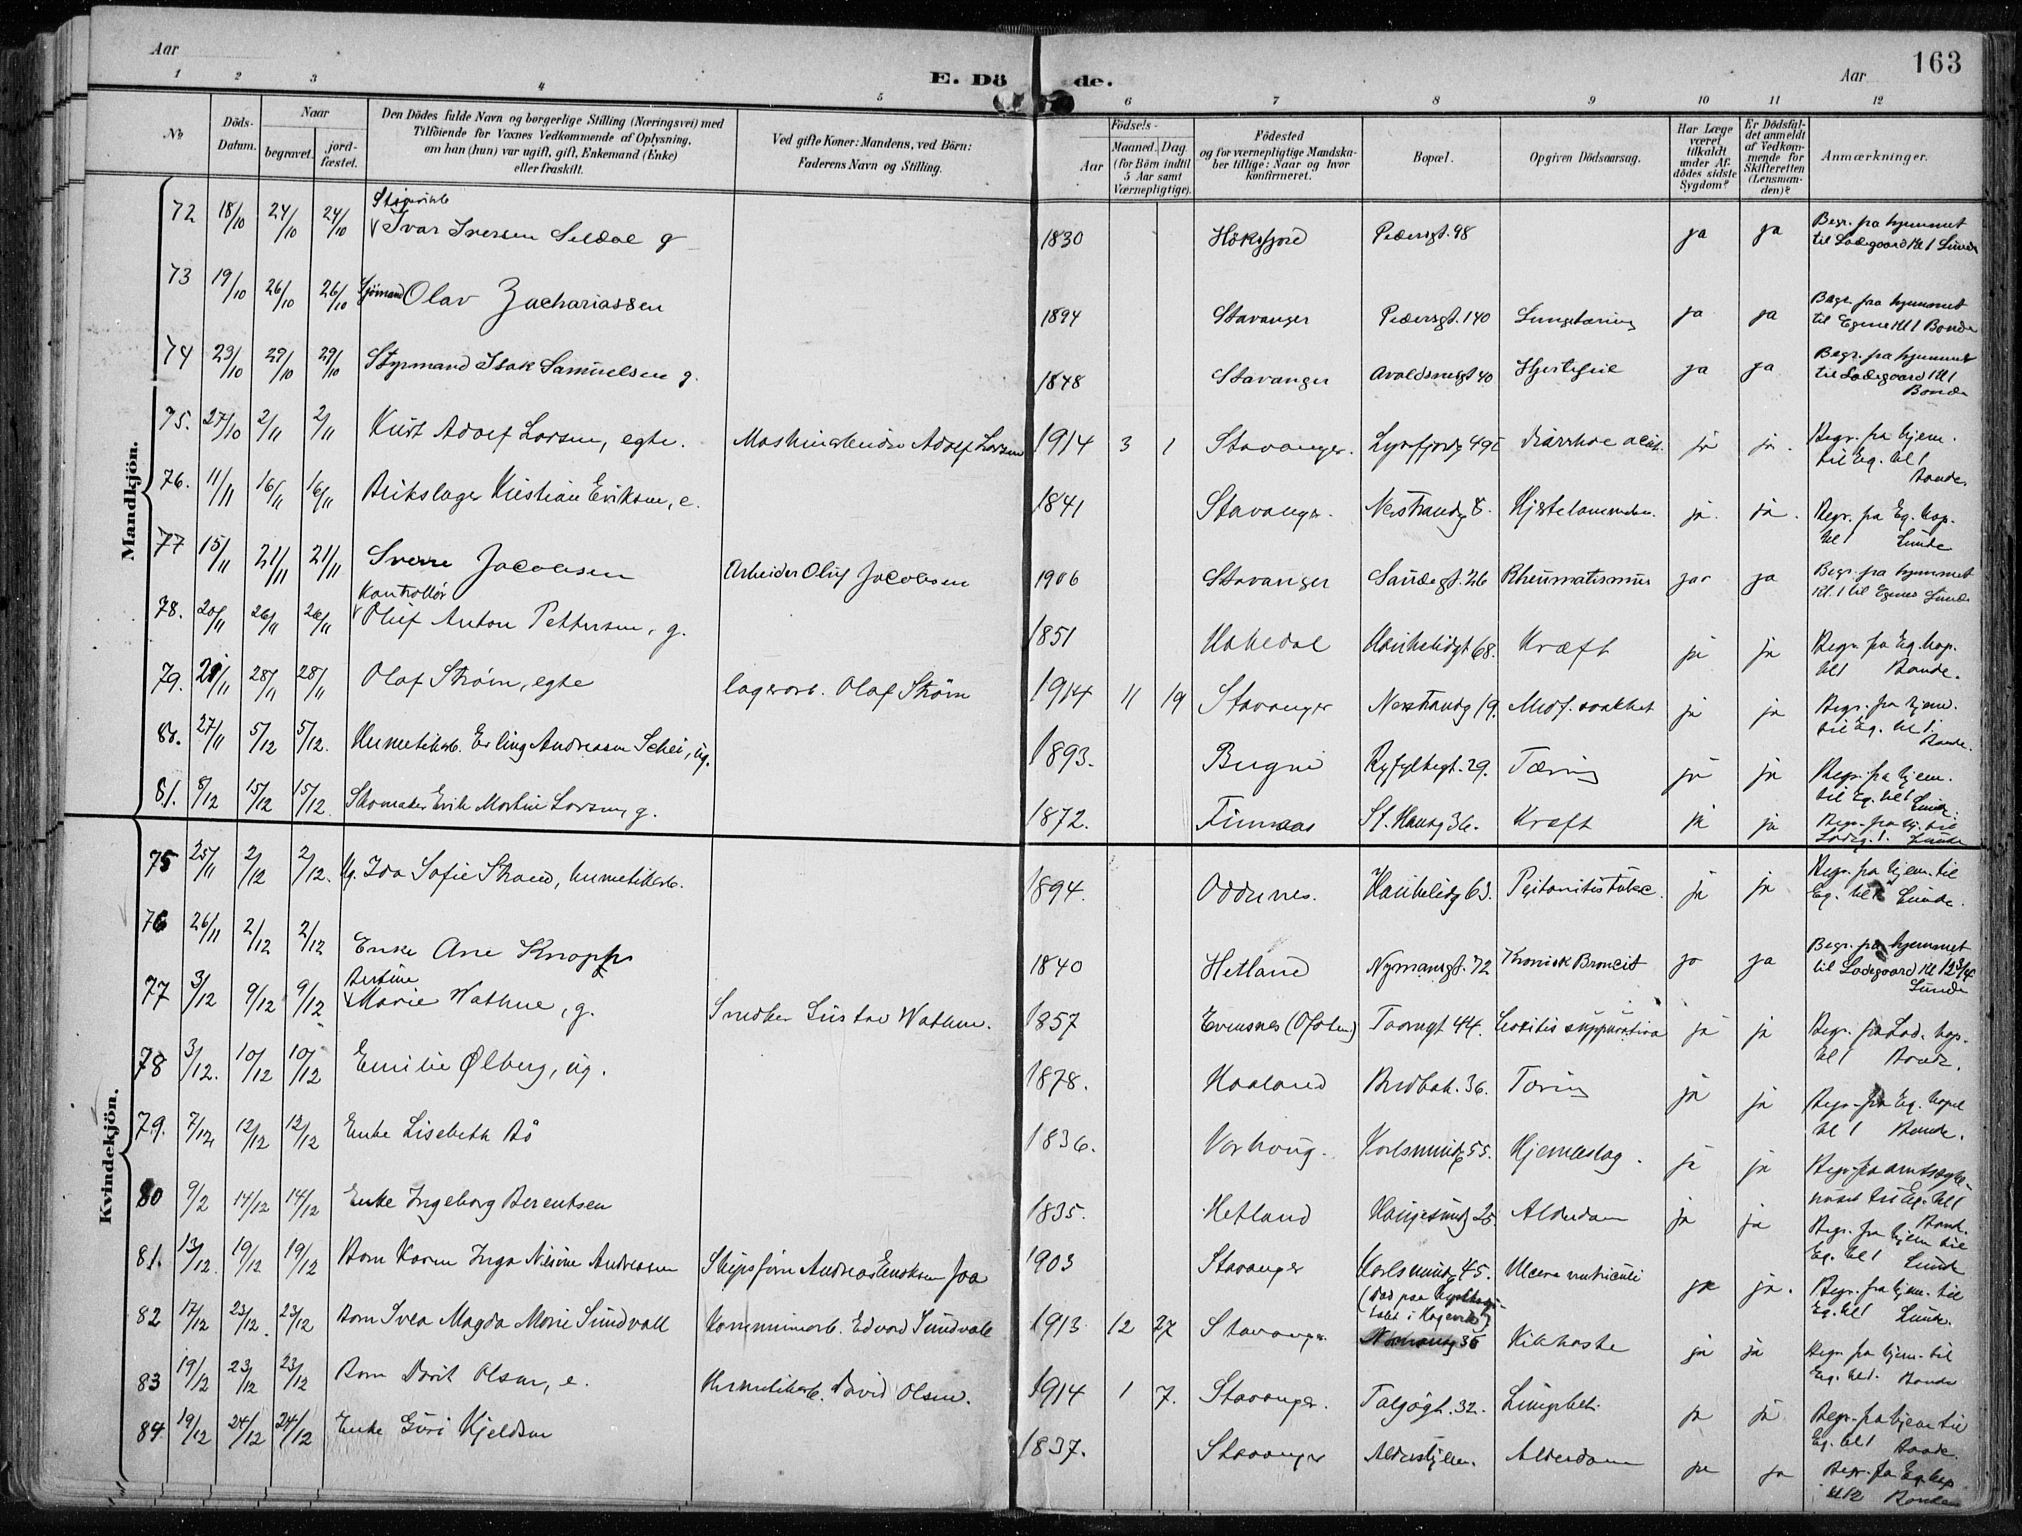 163
Aar
E. Dö de.
Aar
1 2 3 4 5 6 7 8 9 10 11 12
No
Döds-Datum.
Naar
begravet.
jordfæstet.
Den Dödes fulde Navn og borgerlige Stilling (Næringsvei) med
Tilföiende for Voxnes Vedkommende af Oplysning,
om han (hun) var ugift, gift, Enkemand (Enke)
eller fraskilt.
Ved gifte Koner: Mandens, ved Börn:
Faderens Navn og Stilling.
Födsels-
Aar
Maaned. Dag.
(for Börn indtil
5 Aar samt
Værnepligtige).
Födested
og for værnepligtige Mandska-
ber tillige: Naar og hvor
konfirmeret.
Bopæl.
Opgiven Dödsaarsag.
Har Læge
været
tilkaldt
under Af-
dödes sidste
Sygdom?
Er Dödsfal-
det anmeldt
af Vedkom-
mende for
Skifteretten
(Lensman-
den)?
Anmærkninger.
Mandkjön.
72 18/10 24/10 24/10 Ivar Iversen Seldal g 1830 Høksfjord Pedersgt. 98 ja ja Begr. fra hjemmet til Ladegaard Kl 1 Lunde
73 19/10 26/10 26/10 Sjømand Olav Zachariassen 1894 Stavanger Pedersgt. 140 Lungetæring ja ja Begr. fra hjemmet til Egenes Kl 1 Bonde
74 23/10 29/10 29/10 Styrmand Isak Samuelsen g. 1848 Stavanger Avaldsnesgt 40 Hjertefeil ja ja Begr. fra hjemmet til Ladegaard Kl 1 Bonde
75. 27/10 2/11 2/11 Kurt Adolf Larsen, egte. Maskinarbeider Adolf Larsen 1914 3 1 Stavanger. Lysefjordg 49 Diarrhoe acut. ja ja. Begr. fra hjem. til Eg. kl 1 Bonde.
76. 11/11 16/11 16/11 Blikslager Kristian Eriksen, e. 1841 Stavanger. Nerstrandg 8. Hjertelammelse. ja. ja. Begr. fra Eg. kap. kl 1 Lunde
77 15/11 21/11 21/11 Sverre Jacobsen Arbeider Oluf Jacobsen 1906 Stavanger Saudegt. 26 Rheumatismus ja ja Begr. fra hjemmet Kl. 1 til Egenes Lunde
78. 20/11 26/11 26/11 Kontrollør Oluf Anton Pettersen, g. 1851 Hakedal Haukeligt 68. Kræft ja ja Begr. fra Eg. kap. kl 1 Bonde.
79. 28/11 28/11 Olaf Strøm, egte lagerarb. Olaf Strøm 1914 11 19 Stavanger Nerstrandg 19. Medf. svakhet ja ja Begr. fra hjem. til Eg. kl 1. Bonde.
80. 27/11 5/12 5/12. Hermetikarb. Erling Andreasen Schei, ug. 1893. Ryfylkegt. 29. Tæring ja ja Begr. fra hjem. til Eg. kl 1 Lunde.
81. 8/12 15/12 15/12. Skomaker Erik Martin Larsen, g. 1872. Finnaas St. Hansg 36. Kræft ja ja Begr. fra hj. til Ladeg. 1. Lunde
Kvindekjön.
75 25/11 2/12 2/12. Ug. Ida Sofie Strand, hermetikarb. 1894. Oddernes. Haukelidg 63. Peritonitis tubc. ja ja Begr. fra hjem. til Eg. kl 1 Lunde.
76 26/11 2/12 2/12 Enke Ane Knopph 1840 Hetland Nymansgt. 72 Kronisk Broncit ja ja Begr. fra hjemmet til Ladegaard Kl 12 3/4 Lunde
77 3/12 9/12 9/12 Marie Wathne, g. Snedker Gustav Wathne. 1857 Evensnes (Ofoten) Taarngt 44. suppurativa ja ja Begr. fra Lad. kap. kl 1 Bonde.
78 3/12. 10/12 10/12 Emilie Ølberg, ug. 1878. Haaland Bredbak. 36. Tæring ja ja Begr. fra Eg. kapel kl 1 Bonde.
79. 7/12 12/12 12/12 Enke Lisebeth Bø 1836. Varhaug. Karlsmindeg 55. Hjerneslag. ja ja Begr. fra amtssykehuset til Eg. kl 1 Bonde.
80 9/12 14/12 14/12 Enke Ingeborg Berentsen 1835. Hetland Haugesundg 25 Alderdom ja ja Begr. fra hjem til Eg. kl 1 Lunde
81. 13/12. 19/12. 19/12 Barn Karen Inga Andreasen Skipsfører Andreas Enoksen Joa 1903 Stavanger Karlsmindeg 45. Ulcera ventriculi ja ja. Begr. fra hjem. til Eg. kl 1 Lunde.
82 17/12 23/12. 23/12 Barn Svea Magda Marie Sundvall Kommunearb. Edvard Sundvall 1913 12 27 Stavanger Kikhoste ja ja Begr. fra hjem. til Eg. kl 1. Bonde
83 19/12 23/12 23/12 Barn Dorit Olsen, e. Hermetikarb. David Olsen. 1914 1 7. Stavanger. Talgøgt. 32. Lungebet. ja ja Begr. fra hjem til Eg. kl 1 Bonde.
84. 19/12 24/12 24/12 Enke Guri Kjeldsen 1837. Stavanger Aldershjem. Alderdom ja ja Begr. fra Eg. kap kl 12 Bonde